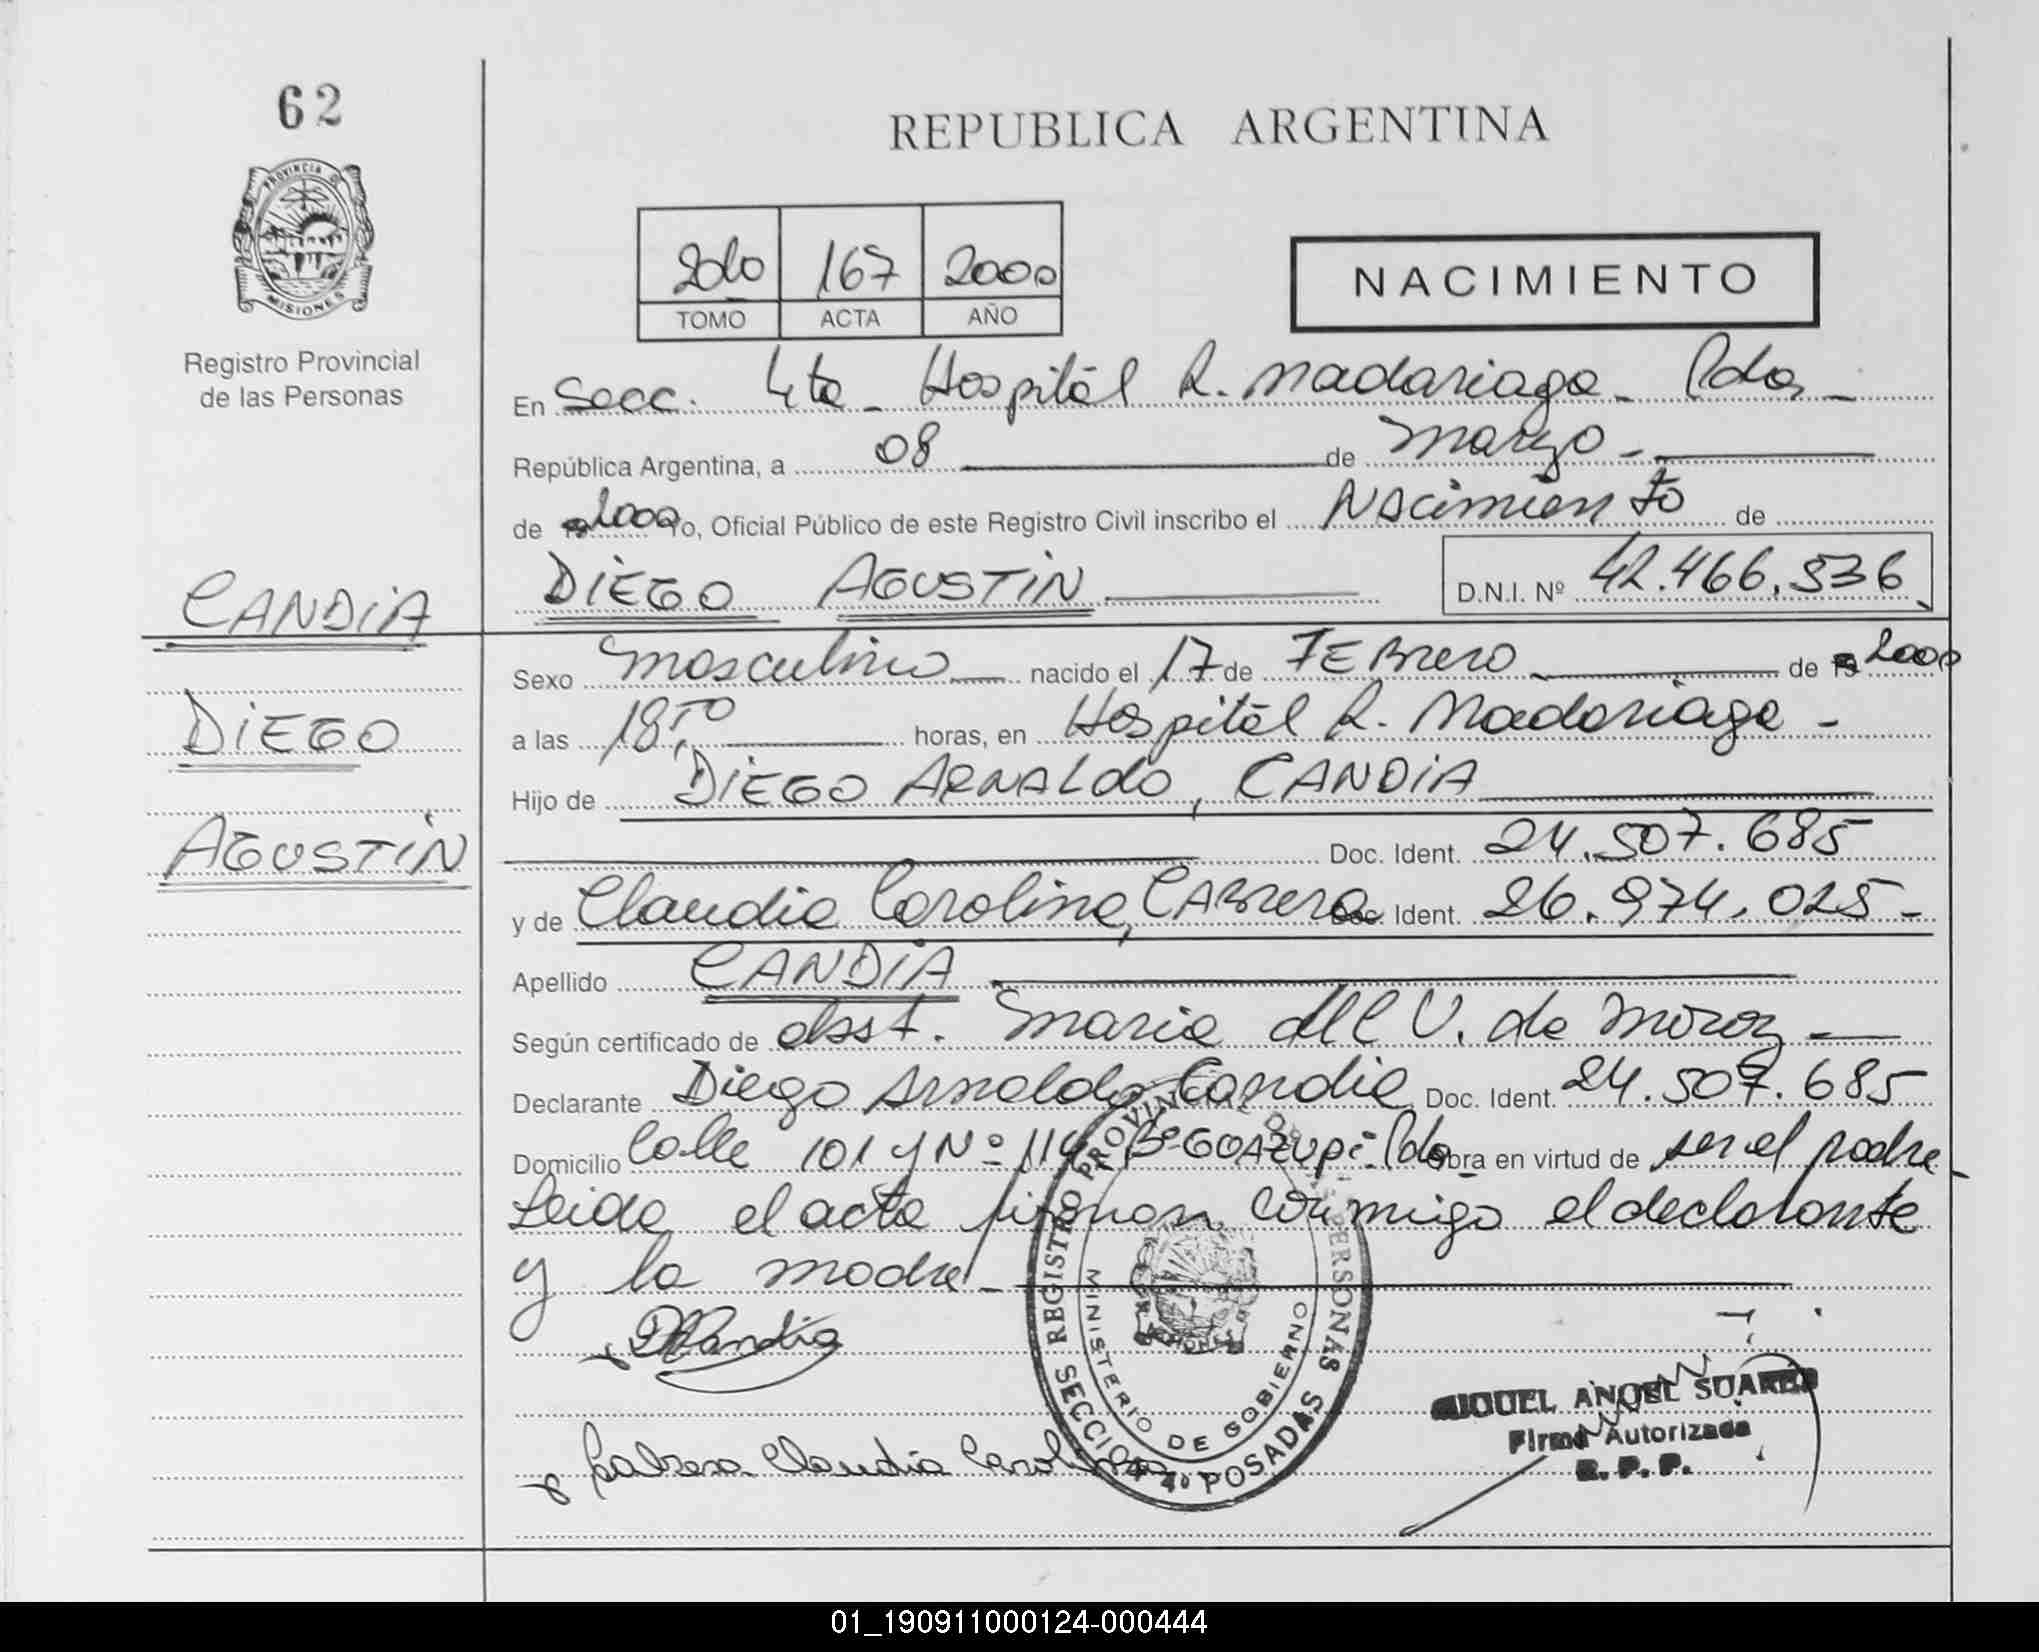 62
REPUBLICA ARGENTINA
PROVINCIA D
MISIONES
Registro Provincial
de las Personas
2do 167 2000
TOMO ACTA AÑO
NACIMIENTO
En Secc. 4ta - Hospital R. Madariaga - Pdas -
República Argentina, a 08 de Marzo -
de 2000 Yo, Oficial Público de este Registro Civil inscribo el Nacimiento de
CANDIA
DIEGO AGUSTIN D.N.I. Nº 42.466.536
Sexo Masculino nacido el 17 de FEBrero de 19 2000
DIEGO
a las 18:50 horas, en Hospital R. Madariaga -
Hijo de DIEGO ARNALdo, CANDIA
AGUSTIN
Doc. Ident. 24.507.685
y de Claudia Carolina, CABrera Doc. Ident. 26.974.025 -
Apellido CANDIA
Según certificado de obst. Maria del C V. de
Declarante Diego Arnaldo Candia Doc. Ident. 24.507.685
Domicilio Calle 101 y Nº 114 Bº Pdas Obra en virtud de ser el padre -
Leida el acta firman conmigo el declarante
y la madre -
DACandia
Cabrera Claudia Carolina
REGISTRO PROVINCIAL DE PERSONAS
MINISTERIO DE GOBIERNO
SECCION 4º POSADAS
MIGUEL ANGEL SUAREZ
Firma Autorizada
R. P. P.
01_190911000124-000444